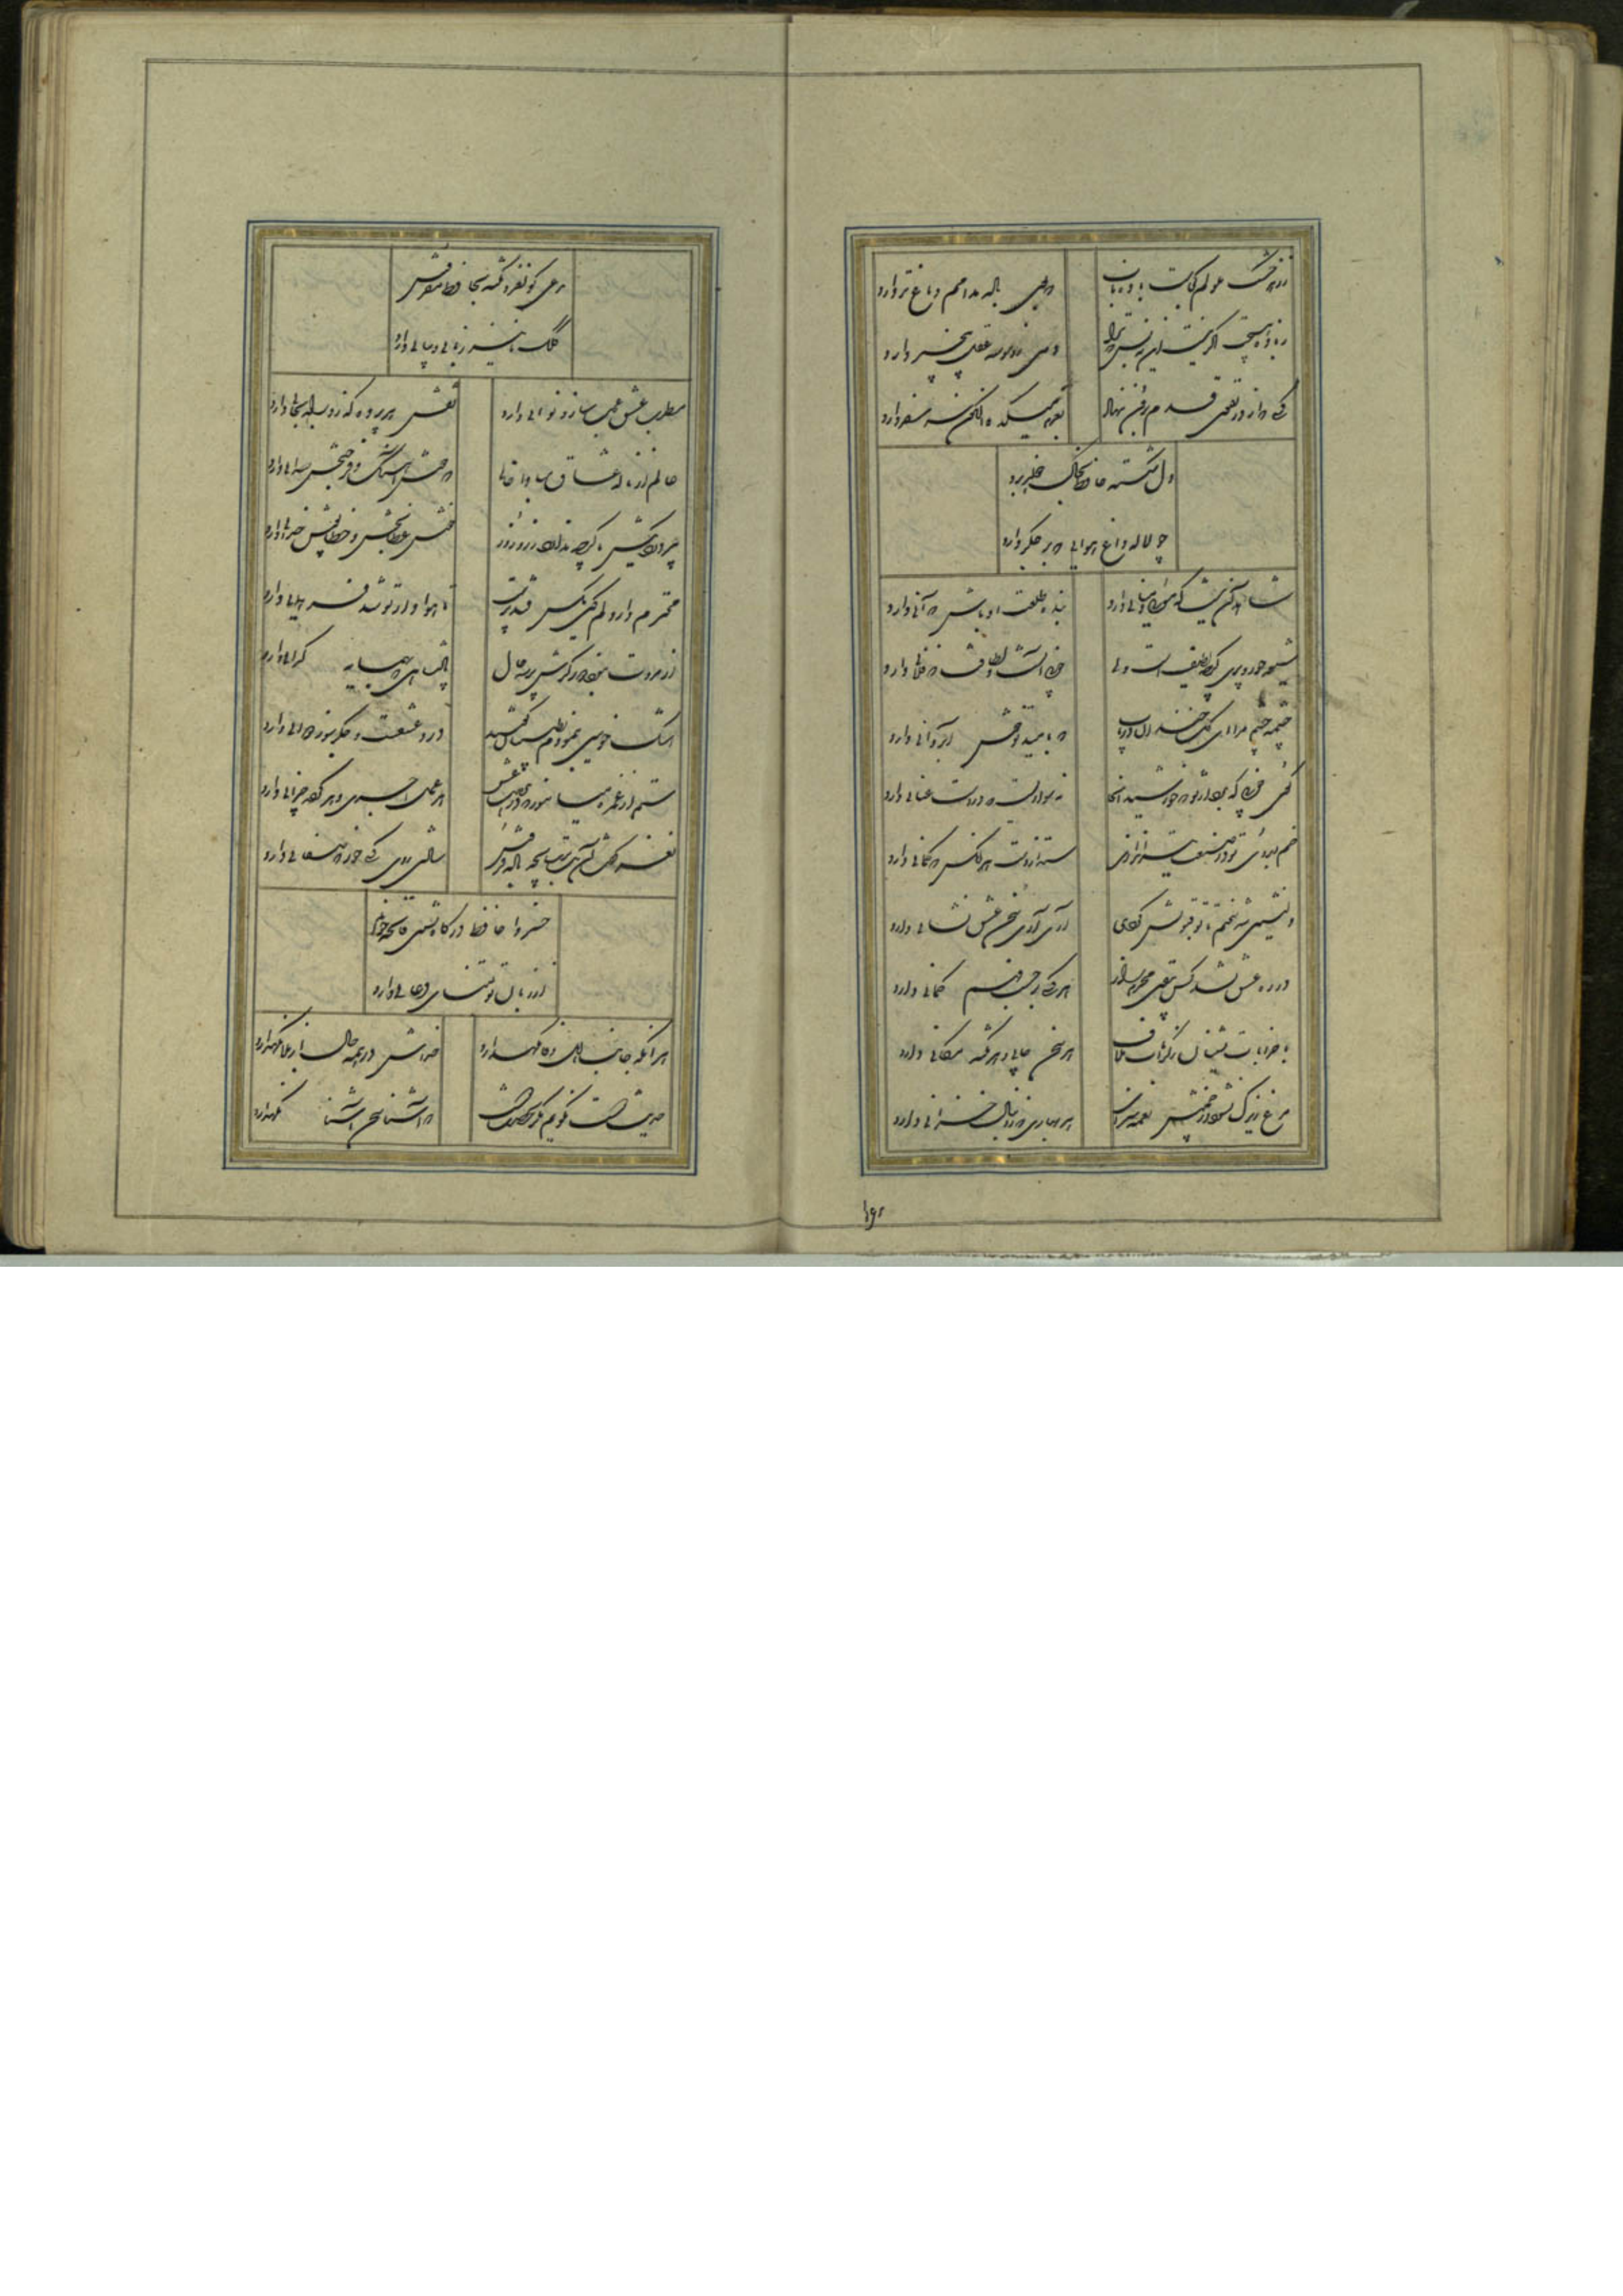 ز زهد خشک ملولم کجاست باده ناب که بوی باده مدامم دماغ تر دارد
ز باده هیچت اگر نیست این نه بس که ترا دمی ز وسوسه عقل بیخبر دارد
کسی که از در تقوی قدم برون ننهاد بعزم میکده اکنون سر سفر دارد
دل شکسته حافظ بخاک خواهد برد
چو لاله داغ هوایی که بر جگر دارد
شاهد آن نیست که مویی و میانی دارد بنده طلعت او باش که آنی دارد
شیوه حور و پری گرچه لطیف است ولی خوبی آنست و لطافت که فلانی دارد
چشمه چشم مرا ای گل خندان دریاب که بامید تو خوش آب روانی دارد
گوی خوبی که برد از تو که خورشید آنجا نه سواریست که در دست عنانی دارد
خم ابروی تو در صنعت تیراندازی بستد از دست هر آنکس که کمانی دارد
دلنشین شد سخنم تا تو قبولش کردی آری آری سخن عشق نشانی دارد
در ره عشق نشد کس بیقین محرم راز هر کسی بر حسب فهم گمانی دارد
با خرابات نشینان ز کرامات ملاف هر سخن جایی و هر نکته مکانی دارد
مرغ زیرک نشود در چمنش نغمه سرای هر بهاری که ز دنبال خزانی دارد
مدعی گو نغز و نکته بحافظ مفروش
کلک ما نیز زبانی و بیانی دارد
مطرب عشق عجب ساز و نوایی دارد نقش هر پرده که زد راه بجایی دارد
عالم از ناله عشاق مبادا خالی که خوش آهنگ و فرح بخش صدایی دارد
پیر دردی کش ما گرچه ندارد زر و زور خوش عطابخش و خطاپوش خدایی دارد
محترم دار دلم کین مگس قند پرست تا هواخواه تو شد فر همایی دارد
از مروت نبود دور گرش پرسد حال پادشاهی که بهمسایه گدایی دارد
اشک خونین بنمودم بطبیبان گفتند درد عشقست و جگرسوز دوایی دارد
ستم از غمزه میاموز که در مذهب عشق هر عمل اجری و هر کرده جزایی دارد
نغز گفت آن بت ترسا بچه باده فروش شادی روی کسی خور که صفایی دارد
خسروا حافظ درگاه نشین فاتحه خواند
از زبان تو تمنای دعایی دارد
هر آنکه جانب اهل وفا نگهدارد خداش در همه حال از بلا نگهدارد
حدیث دوست نگویم مگر بحضرت دوست که آشنا سخن آشنا نگهدارد